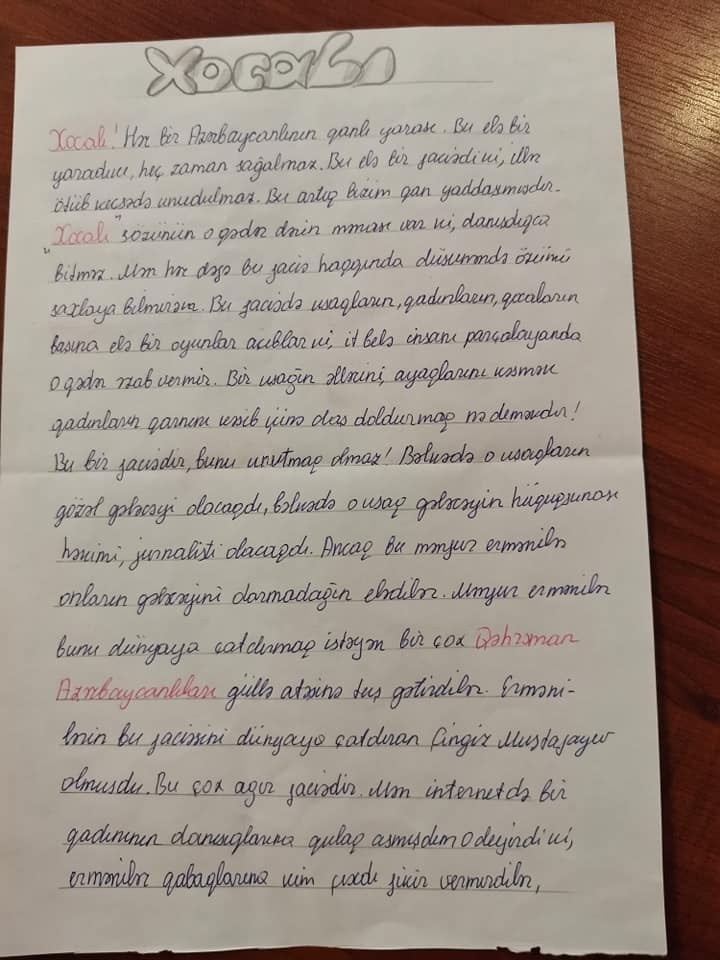 Xocalı
Xocalı! Hər bir Azərbaycanlının qanlı yarası. Bu elə bir
yaradıcı, heç zaman sağalmaz. Bu elə bir faciədi ki, illər
ötüb keçsədə unudulmaz. Bu artıq bizim qan yaddaşmışdır.
"Xocalı" sözünün o qədər dərin mənası var ki, danışdıqca
bitməz. Mən hər dəfə bu faciə haqqında düşünəndə özümü
saxlaya bilmirəm. Bu faciədə uşaqların, qadınların, qocaların
başına elə bir oyunlar açıblar ki, it belə insanı parçalayanda
o qədər əzab vermir. Bir uşağın əllərini, ayaqlarını kəsmək
qadınların qarnını kəsib içinə daş doldurmaq nə deməkdir!
Bu bir faciədir, bunu unutmaq olmaz! Bəlkədə o uşaqların
gözəl gələcəyi olacaqdı, bəlkədə o uşaq gələcəyin hüquqşunası
həkimi, jurnalisti olacaqdı. Ancaq bu mənfur ermənilər
onların gələcəyini darmadağın elədilər. Mənfur ermənilər
bunu dünyaya çatdırmaq istəyən bir çox Qəhrəman
Azərbaycanlıları güllə atəşinə tuş gətirdilər. Erməni-
lərin bu faciəsini dünyaya çatdıran Çingiz Mustafayev
olmuşdu. Bu çox ağır faciədir. Mən internetdə bir
qadınının danışıqlarına qulaq asmışdım o deyirdi ki,
ermənilər qabaqlarına kim çıxdı fikir vermirdilər,